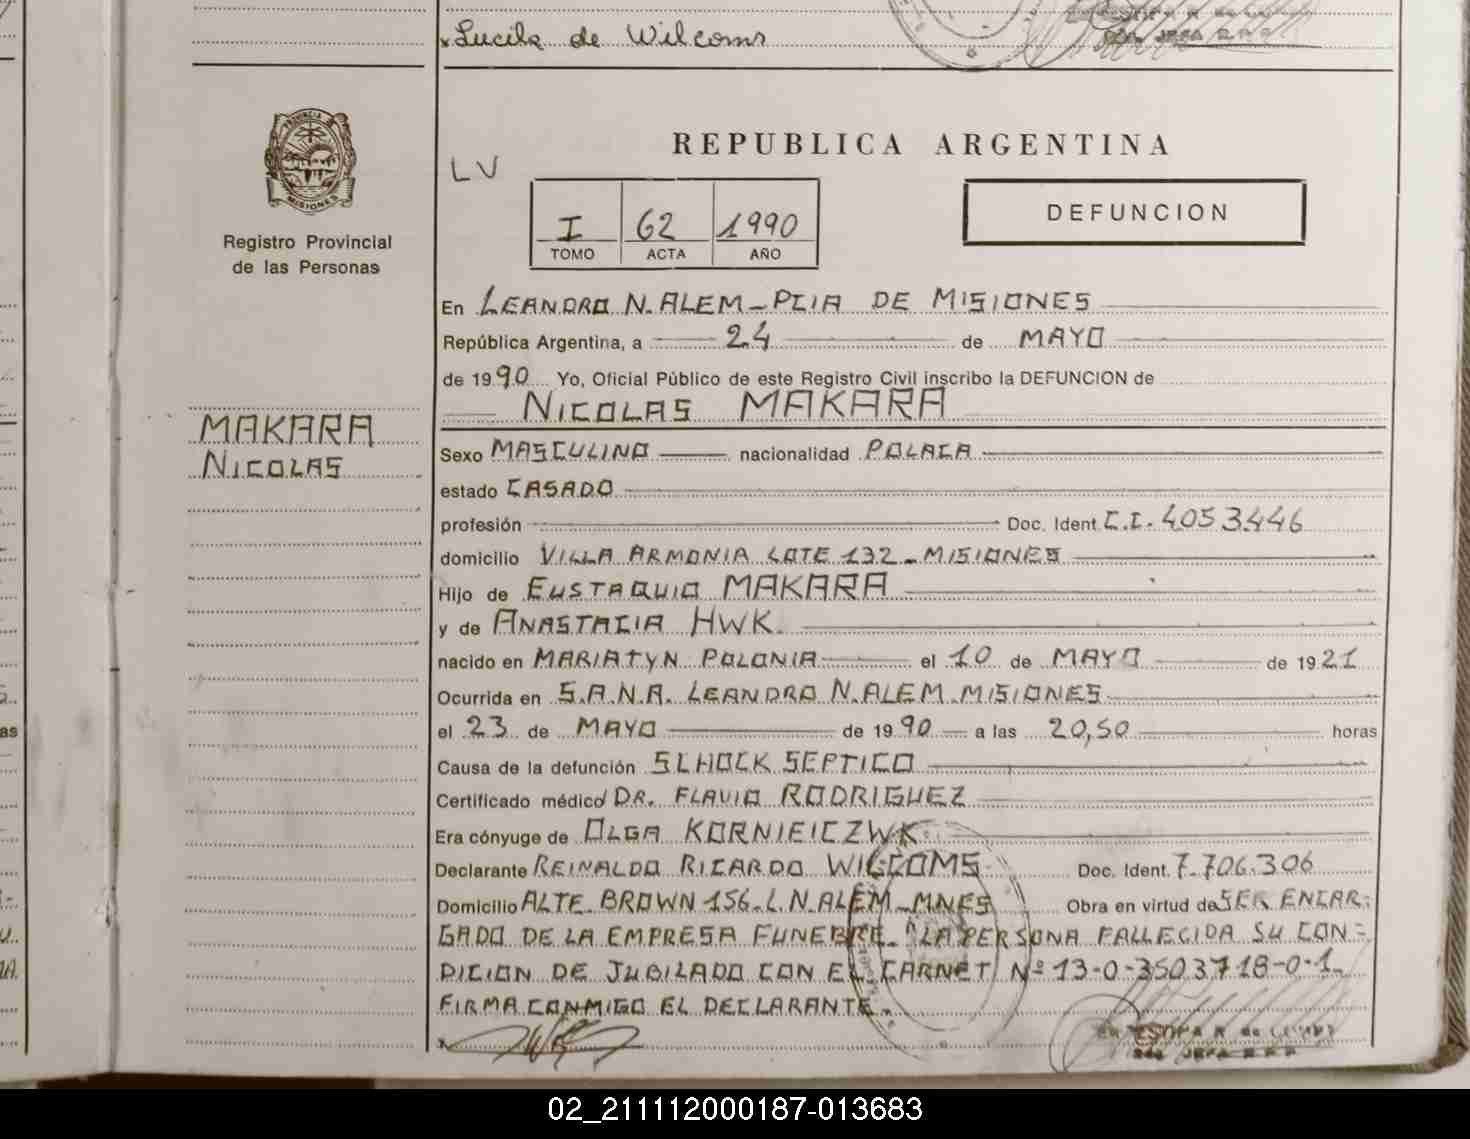 Lucila de Wilcoms
PROVINCIA DE
MISIONES
Registro Provincial
de las Personas
MAKARA
NICOLAS
LV
REPUBLICA ARGENTINA
I 62 1990
TOMO ACTA AÑO
DEFUNCION
En LEANDRO N. ALEM - PCIA DE MISIONES
República Argentina, a 24 de MAYO
de 1990 Yo, Oficial Público de este Registro Civil inscribo la DEFUNCION de
NICOLAS MAKARA
Sexo MASCULINO nacionalidad POLACA
estado CASADO
profesión Doc. Ident. C.I. 4053446
domicilio VILLA ARMONIA LOTE 132 - MISIONES
Hijo de EUSTAQUIO MAKARA
y de ANASTACIA HWK.
nacido en MARIATYN POLONIA el 10 de MAYO de 1921
Ocurrida en S.A.N.A. LEANDRO N. ALEM MISIONES
el 23 de MAYO de 1990 a las 20,50 horas
Causa de la defunción SCHOCK SEPTICO
Certificado médico DR. FLAVIO RODRIGUEZ
Era cónyuge de OLGA KORNIEICZWK.
Declarante REINALDO RICARDO WILCOMS Doc. Ident. 7.706.306
Domicilio ALTE. BROWN 156 - L.N. ALEM - MNES Obra en virtud de SER ENCAR-
GADO DE LA EMPRESA FUNEBRE. "LA PERSONA FALLECIDA SU CON-
DICION DE JUBILADO CON EL CARNET Nº 13-0-3503718-0-1.
FIRMA CONMIGO EL DECLARANTE.
02_211112000187-013683